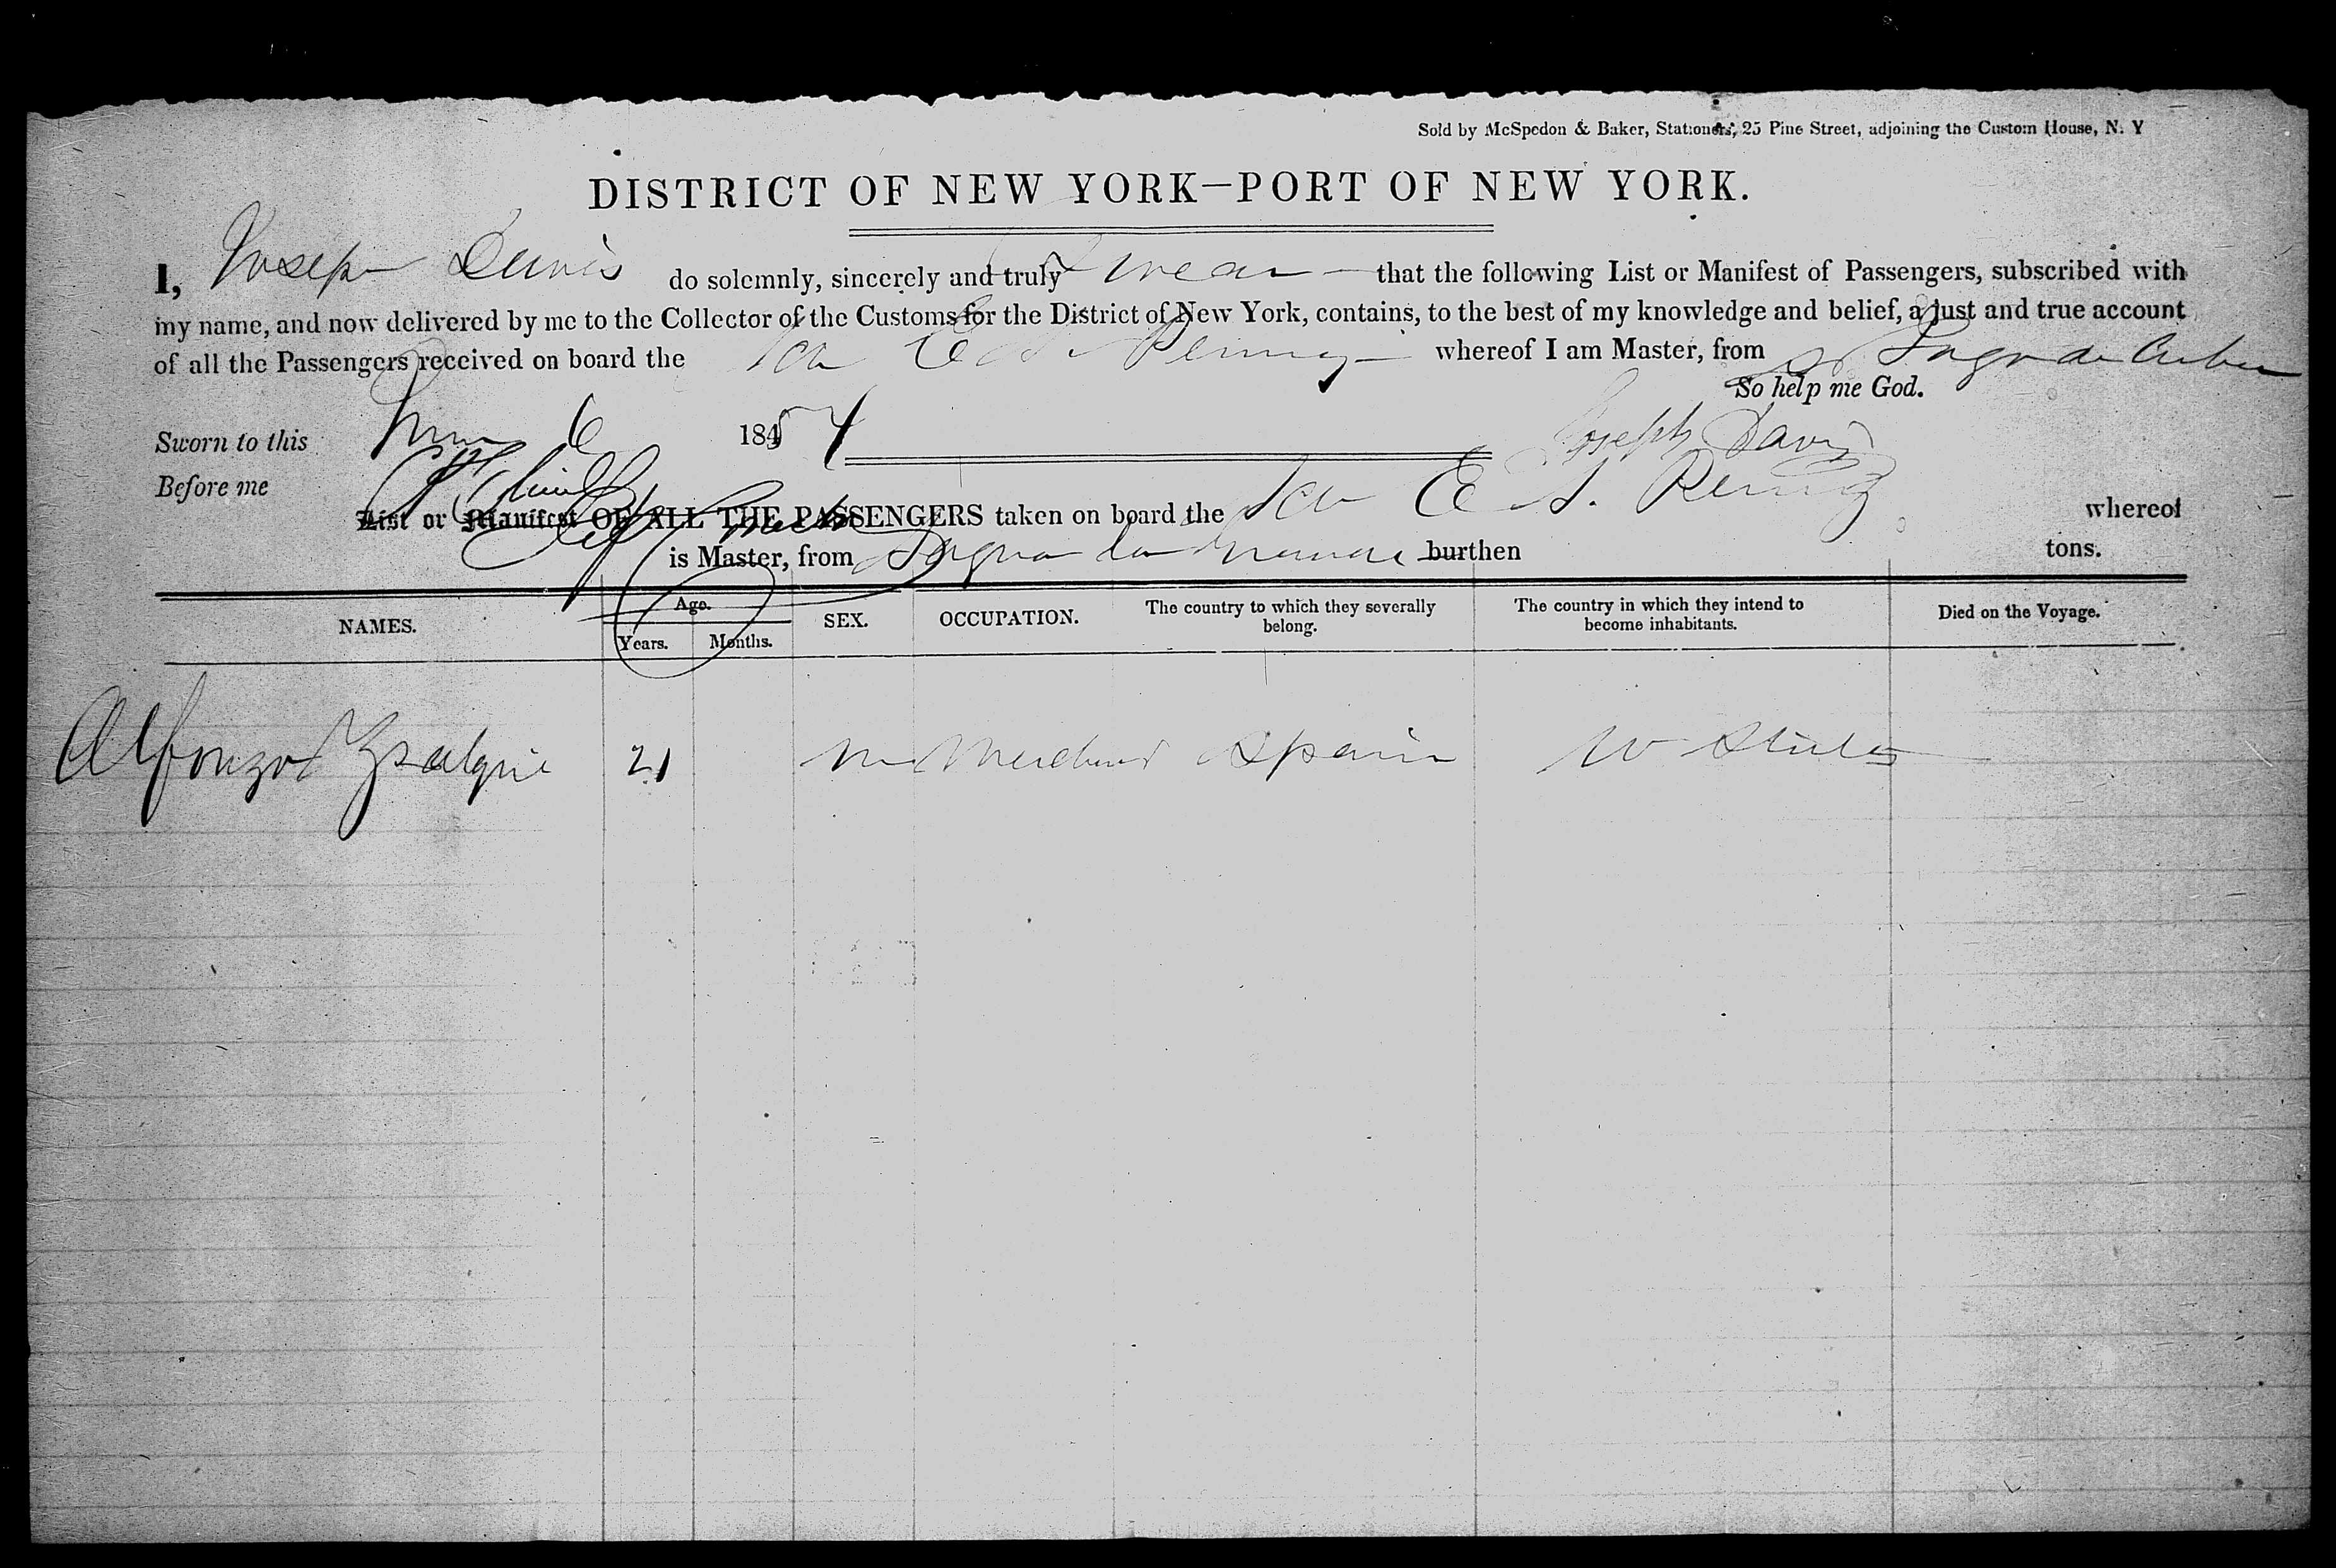 Sold by McSpedon & Baker, Stationers, 25 Pine Street, adjoining the Custom House, N. Y
DISTRICT OF NEW YORK—PORT OF NEW YORK.
I, Joseph Davis do solemnly, sincerely and truly Swear that the following List or Manifest of Passengers, subscribed with
my name, and now delivered by me to the Collector of the Customs for the District of New York, contains, to the best of my knowledge and belief, a just and true account
of all the Passengers received on board the E S. Penny whereof I am Master, from Sagua de Cuba
So help me God.
Sworn to this 6 1854 Joseph Davis
Before me
List or Manifest OF ALL THE PASSENGERS taken on board the E S. Penny whereof
is Master, from Sagua la burthen tons.
NAMES. Age. Years. Months. SEX. OCCUPATION. The country to which they severally belong. The country in which they intend to become inhabitants. Died on the Voyage.
Alfonzo 21 M Merchant Spain U States